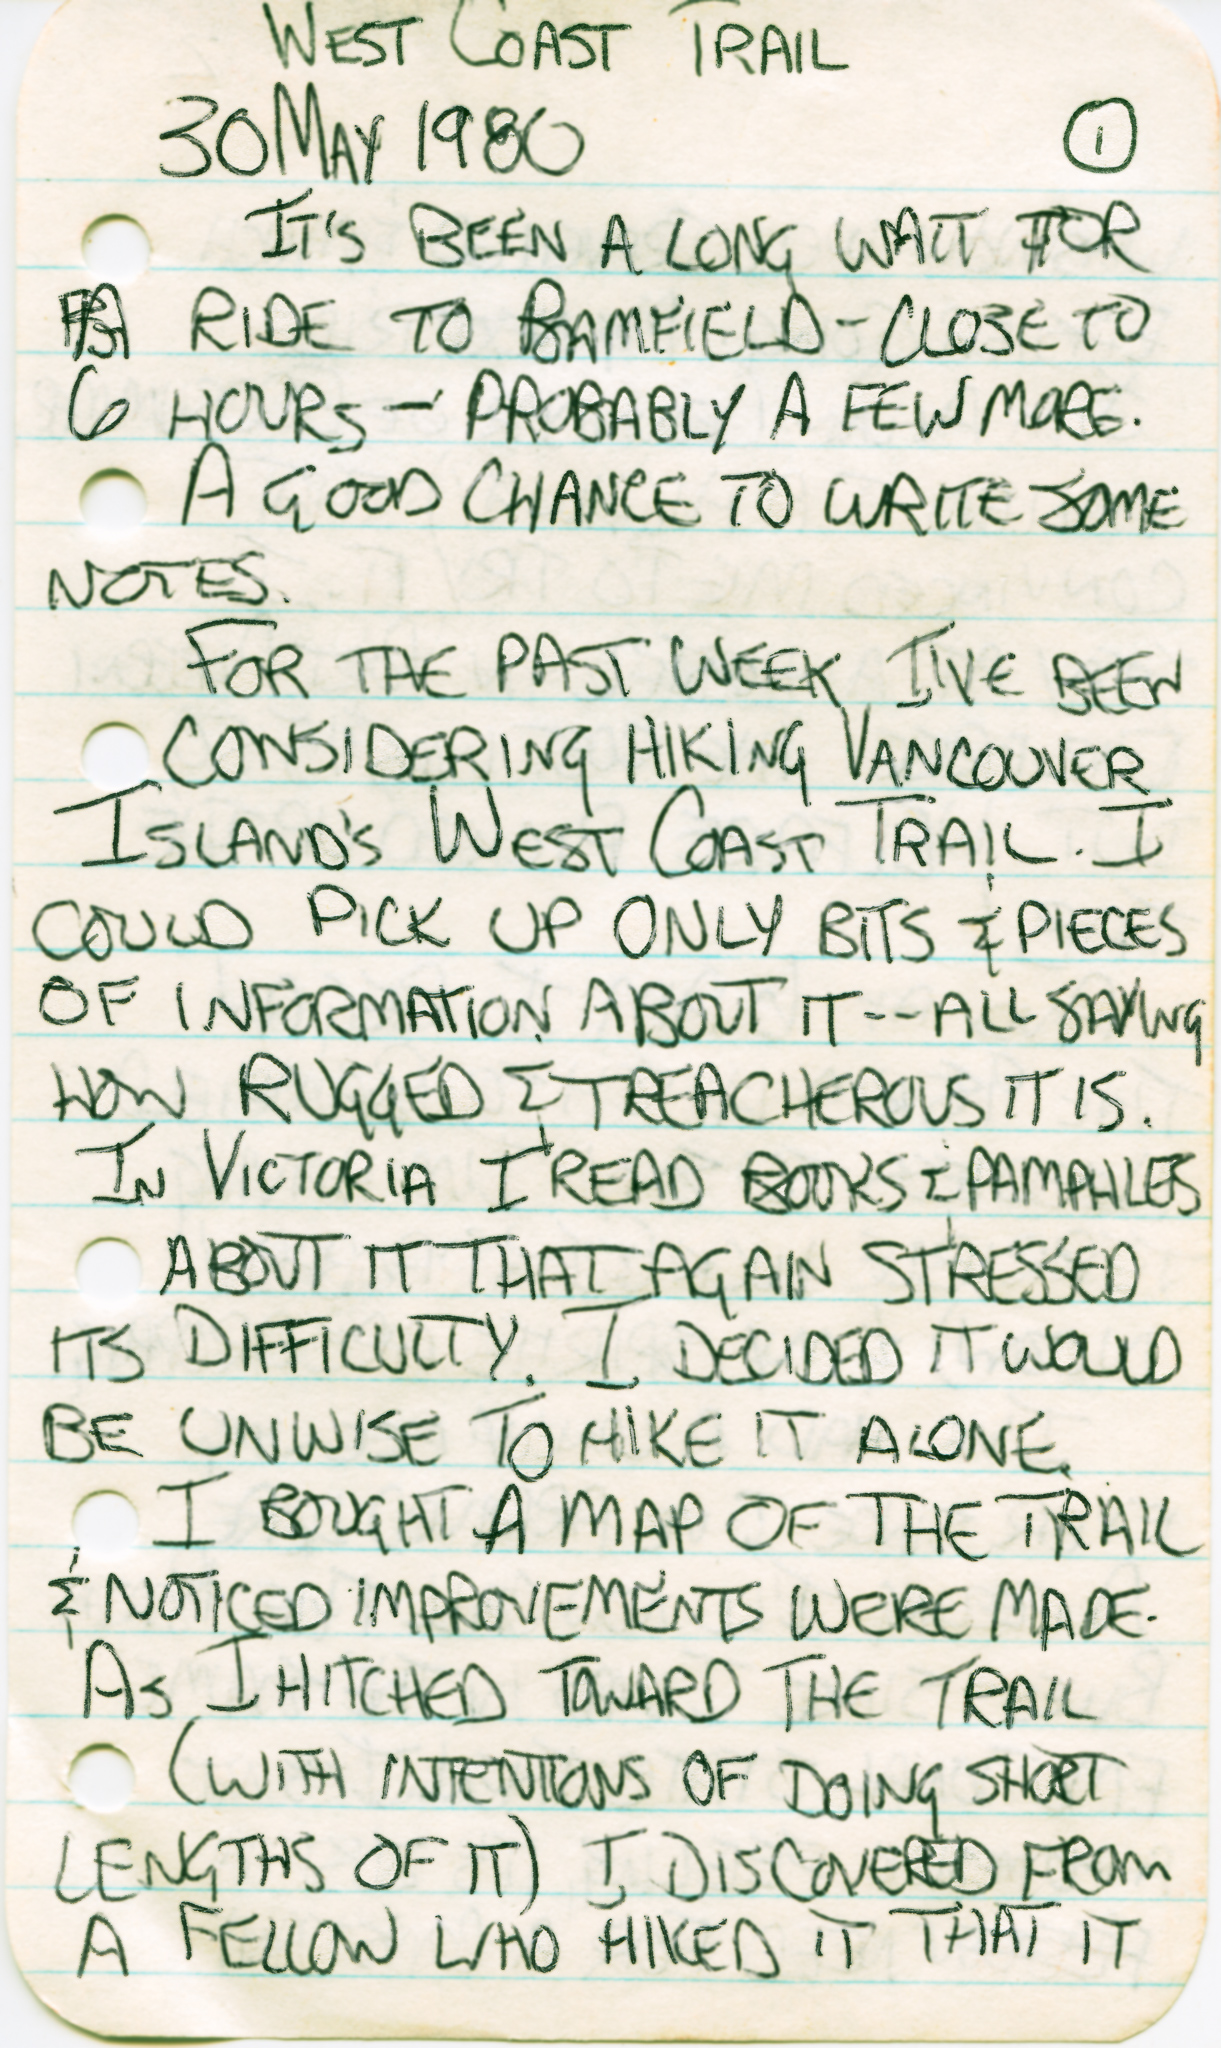 WEST COAST TRAIL
30 MAY 1980
1
IT'S BEEN A LONG WAIT FOR
A RIDE TO BAMFIELD - CLOSE TO
6 HOURS - PROBABLY A FEW MORE.
A GOOD CHANCE TO WRITE SOME
NOTES.
FOR THE PAST WEEK I'VE BEEN
CONSIDERING HIKING VANCOUVER
ISLAND'S WEST COAST TRAIL. I
COULD PICK UP ONLY BITS & PIECES
OF INFORMATION ABOUT IT -- ALL SAYING
HOW RUGGED & TREACHEROUS IT IS.
IN VICTORIA I READ BOOKS & PAMPHLETS
ABOUT IT THAT AGAIN STRESSED
ITS DIFFICULTY. I DECIDED IT WOULD
BE UNWISE TO HIKE IT ALONE.
I BOUGHT A MAP OF THE TRAIL
& NOTICED IMPROVEMENTS WERE MADE.
AS I HITCHED TOWARD THE TRAIL
(WITH INTENTIONS OF DOING SHORT
LENGTHS OF IT) I DISCOVERED FROM
A FELLOW WHO HIKED IT THAT IT